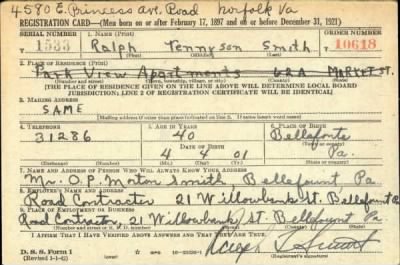 4580 E. Princess ave. Road Norfolk Va
REGISTRATION CARD—(Men born on or after February 17, 1897 and on or before December 31, 1921)
SERIAL NUMBER 1. NAME (Print) ORDER NUMBER
1533 Ralph Tennyson Smith 10618
(First) (Middle) (Last)
2. PLACE OF RESIDENCE (Print)
Park View Apartments MARKET ST.
(Number and street) (Town, township, village, or city) (County) (State)
[THE PLACE OF RESIDENCE GIVEN ON THE LINE ABOVE WILL DETERMINE LOCAL BOARD
JURISDICTION; LINE 2 OF REGISTRATION CERTIFICATE WILL BE IDENTICAL]
3. MAILING ADDRESS
SAME
[Mailing address if other than place indicated on line 2. If same insert word same]
4. TELEPHONE 5. AGE IN YEARS 6. PLACE OF BIRTH
31286 40 Bellefonte
DATE OF BIRTH (Town or county)
4 4 01 Pa.
(Exchange) (Number) (Mo.) (Day) (Yr.) (State or country)
7. NAME AND ADDRESS OF PERSON WHO WILL ALWAYS KNOW YOUR ADDRESS
Mr. O.P. Morton Smith, Bellefount, Pa.
8. EMPLOYER'S NAME AND ADDRESS
Road Contractor 21 Willowbank St. Bellefount
9. PLACE OF EMPLOYMENT OR BUSINESS
Road Contractor, 21 Willowbank St. Bellefount Pa
(Number and street or R. F. D. number) (Town) (County) (State)
I AFFIRM THAT I HAVE VERIFIED ABOVE ANSWERS AND THAT THEY ARE TRUE.
D. S. S. Form 1
(Revised 1-1-42) (over)
Ralph T Smith